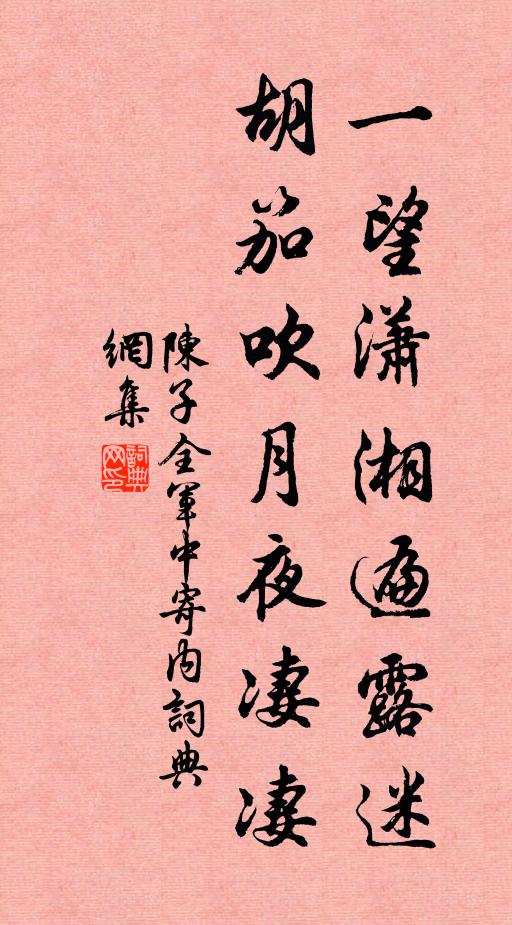 一望瀟湘遍露迷
胡笳吹月夜凄凄
陳子全軍中寄內詞典
網集
詞典
网印